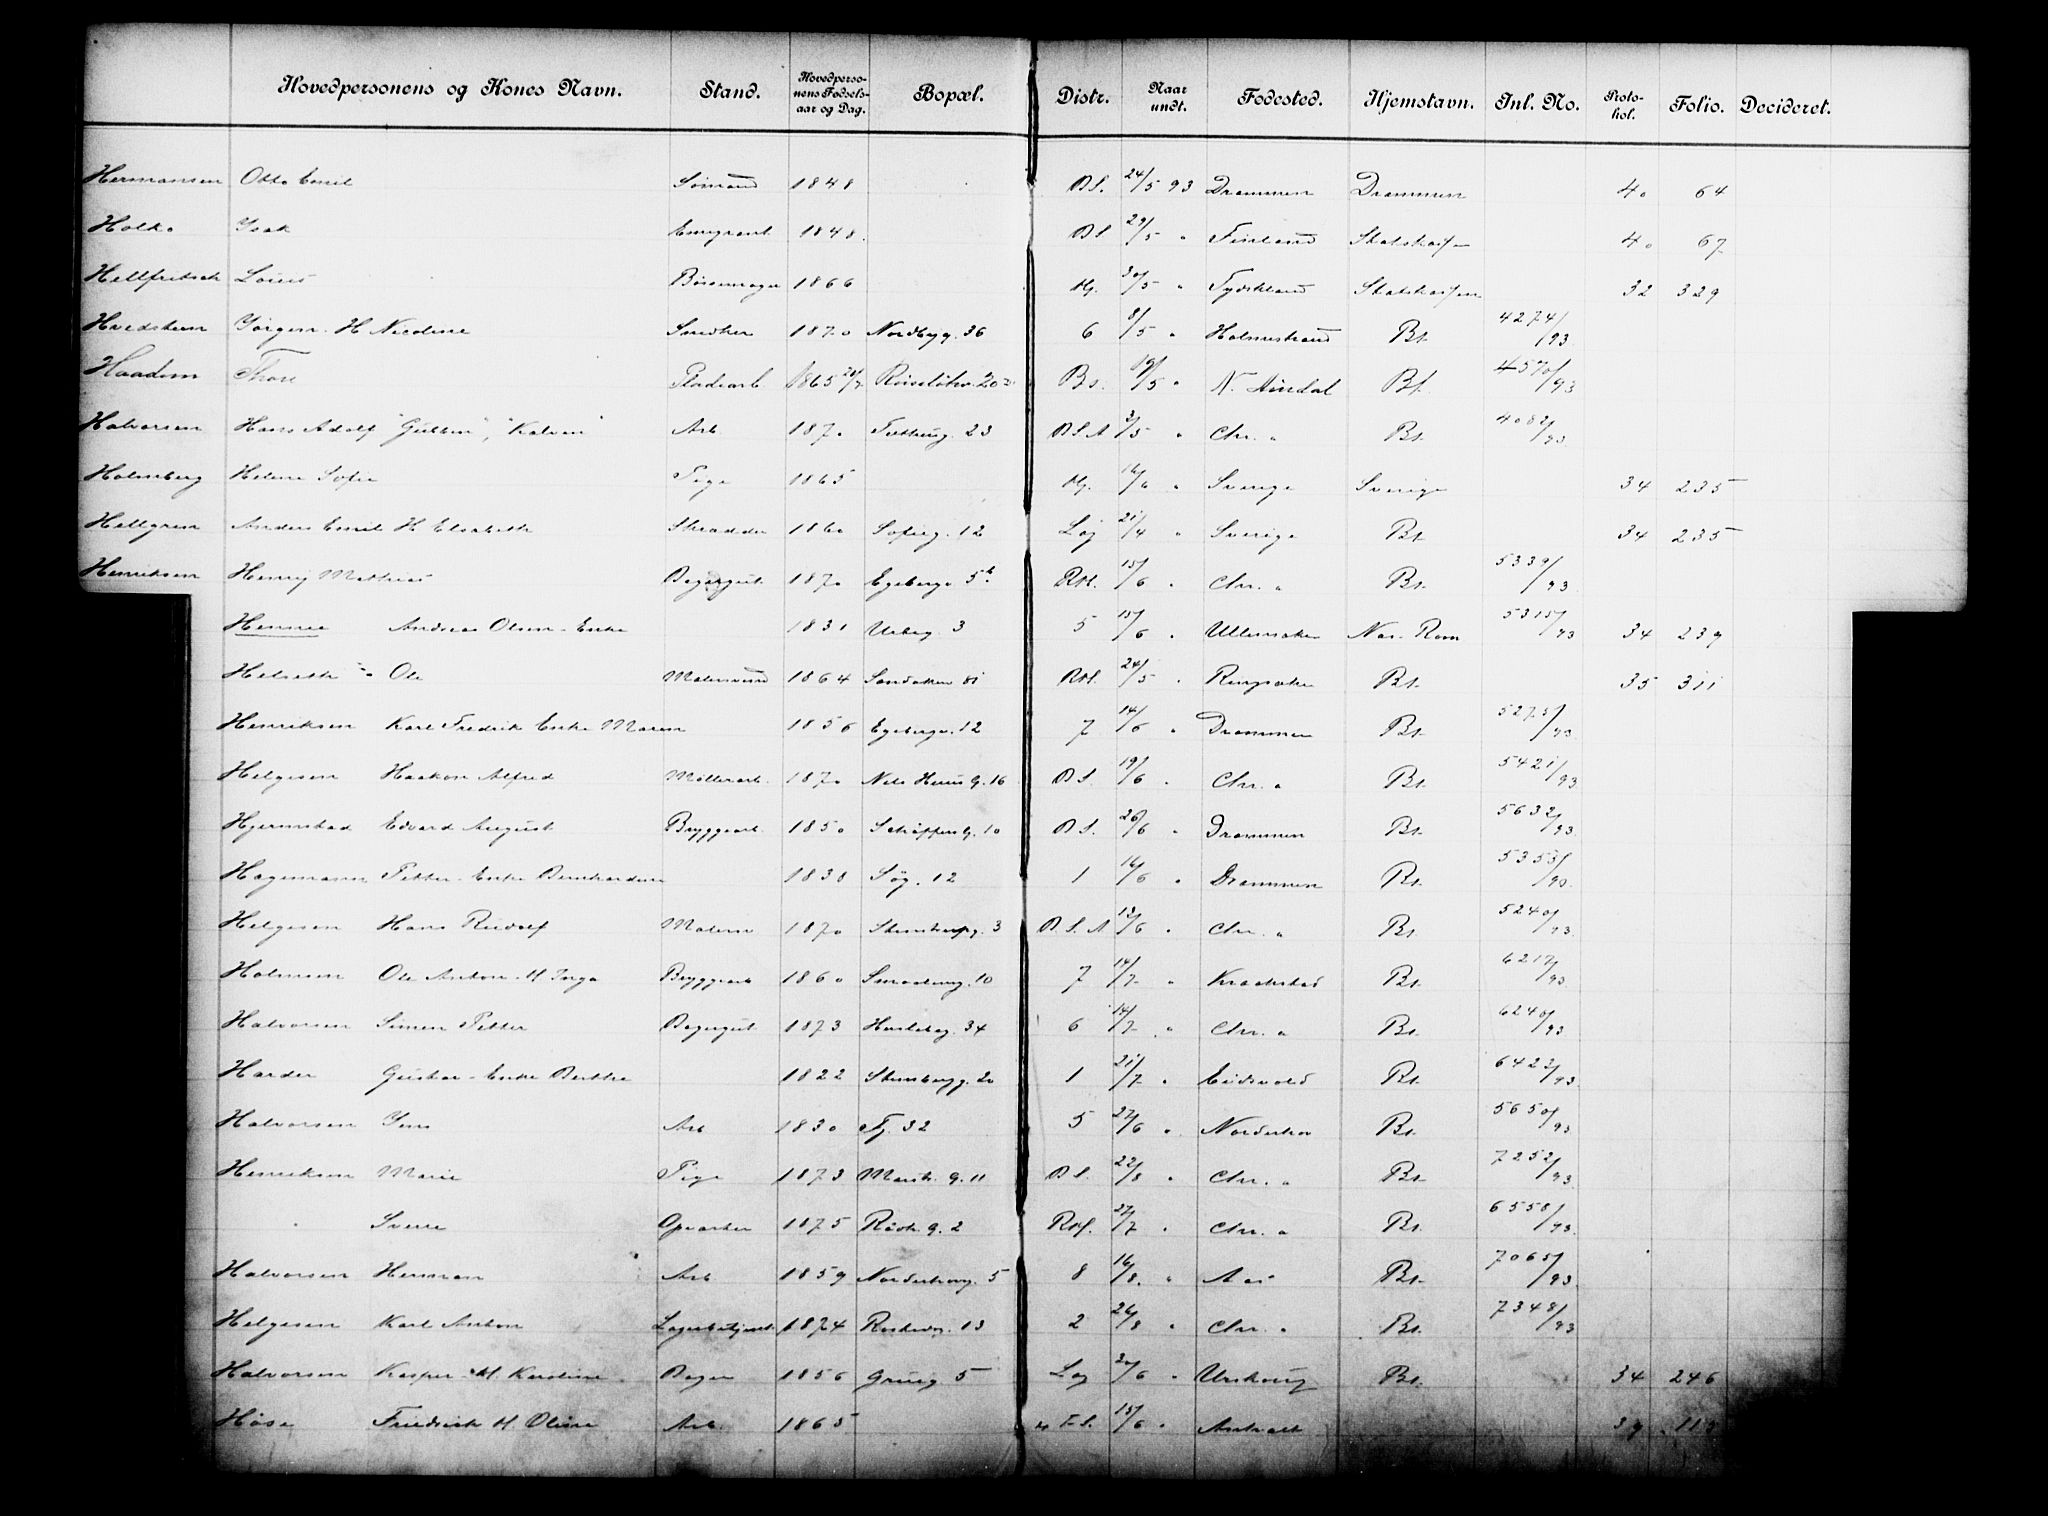 Hovedpersonens og Kones Navn. Stand. Hovedpersonens Fødselsaar og Dag. Bopæl. Distr. Naar undt. Fødested. Hjemstavn. Inl. No. Protokol. Folio. Decideret.
Hermansen Otto Emil Sømand 1848 B S. 24/5 93 Drammen Drammen 40 64
Holko Isak Emigrant 1848. B S 29/5 " Finland Statskassen 40 67
Hellfritsch Louis Børsemager 1866 Hg. 30/5 " Tydskland Statskassen 32 329
Hvedsteen Jørgen H Nicoline Snedker 1870 Nordbyg. 36 6 8/5 " Holmestrand Bt. 4274/93
Haadem Thore 1865 20/7 20 Bs. 19/5 " N. Aurdal Bt. 4570/93
Halvorsen Hans Adolf "Gutten", "Kalven" Arb. 1870 Tofteng. 23 B S A 3/5 " Chr. a Bt. 4082/93
Holmberg Helene Sofie Pige 1865 Hg. 16/6 " Sverige Sverige 34 235
Hellgren Anders Emil H Elisabeth Skrædder 1860 Sofieg. 12 Log 21/4 " Sverige Bt. 34 235
Henriksen Henrij Mathias Bagergut. 1870 Egeberg. 5b Rtf. 15/6 " Chr. a Bt. 5339/93
Hennie Andreas Olsen - Enke 1831 Urbg. 3 5 15/6 " Ullensaker Nes. Rom 5315/93 34 239
Helseth Ole Malersvend 1864 Sandaker 81 Rtf. 24/5 " Ringsaker Bt. 35 311
Henriksen Karl Fredrik Enke Maren 1856 Egeberg. 12 7 14/6 " Drammen Bt. 5275/93
Helgesen Haakon Alfred Møllerarb. 1870 Nels Huus g. 16 B S 19/6 " Chr. a Bt. 5421/93
Hjermstad Edvard August Bryggearb. 1850 Schøffers g. 10 B S. 26/6 " Drammen Bt. 5632/93
Hagemann Petter - Enke Bernhardine 1838 Søg. 12 1 16/6 " Drammen Bt. 5353/93
Helgesen Hans Rudolf Malersv 1870 Stenstrupg. 3 B. S. A 13/6 " Chr. a Bt. 5240/93
Holmsen Ole Anton H Inga Bryggearb 1860 Smedeng. 10 7 14/7 " Kraakstad Bt. 6217/93
Halvorsen Simen Petter Bagergut. 1873 Heslebg. 34 6 14/7 " Chr. a Bt. 6240/93
Harder Gustav - Enke Berthe 1822 Stensbergg. 20 1 21/7 " Eidsvold Bt. 6423/93
Halvorsen Jens Arb 1830 Fj. 32 5 27/6 " Norderhov Bt. 5650/93
Henriksen Marie Pige 1873 Marstr. g. 11 B S. 22/8 " Chr. a Bt. 7252/93
" Sverre Opvarter 1875 Raadh. g. 2 Rtf. 27/7 " Chr. a Bt. 6558/93
Halvorsen Herman Arb 1859 Norderhovg. 5 8 16/8 " Aas Bt. 7065/93
Helgesen Karl Anton Lagerbetjent 1874 13 2 26/8 " Chr. a Bt. 7348/93
Halvorsen Kasper H. Karoline Bager 1856 Grueg 5 Log 20/6 " Urskoug Bt. 34 246
Høse Friedrich H. Oline Arb. 1865 15/6 " 39 118